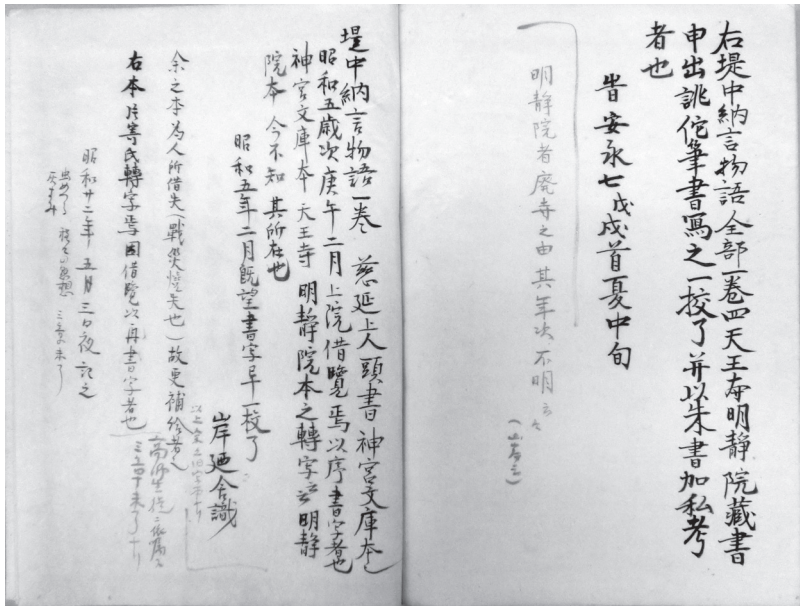 右堤中納言物語全部一巻四天王寺明静院藏書
申出誂佗筆書寫之一挍了并以朱書加私考
者也
旹安永七戊戌首夏中旬
明静院者廃寺之由其年次不明云々
堤中納言物語一巻 慈延上人頭書 神宮文庫本也
昭和五歳次庚午二月上院借覧焉以序書字者也
神宮文庫本 天王寺 明静院本之轉字云 明静
院本 今不知 其所在也
昭和五年二月既望書字早一校了
岸廼舎識
余之本為人所借失(戰災燬失也)故更補給者也
右本片寄氏轉字焉因借覧以再書字者也
昭和廿二年 五月 三日夜 記之